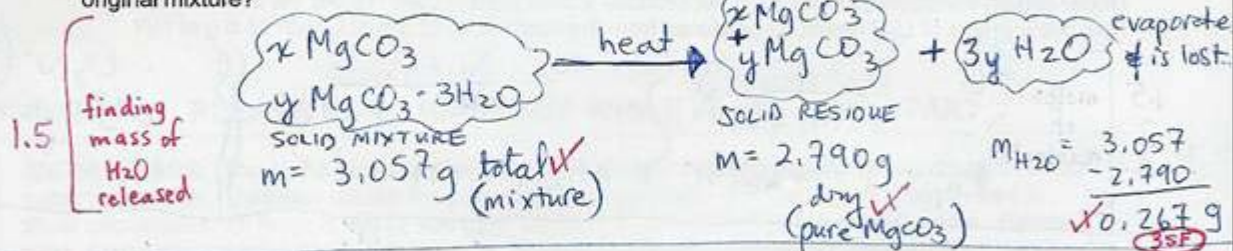 original mixture?
1.5
finding
mass of
H2O
released
x MgCO3
y MgCO3 · 3H2O
SOLID MIXTURE
m = 3.057g total
(mixture)
heat
x MgCO3
+
y MgCO3
SOLID RESIDUE
m = 2.790g
dry
(pure MgCO3)
+
3y H2O
evaporate
& is lost.
MH2O = 3.057
-2.790
0.267 g
3SF